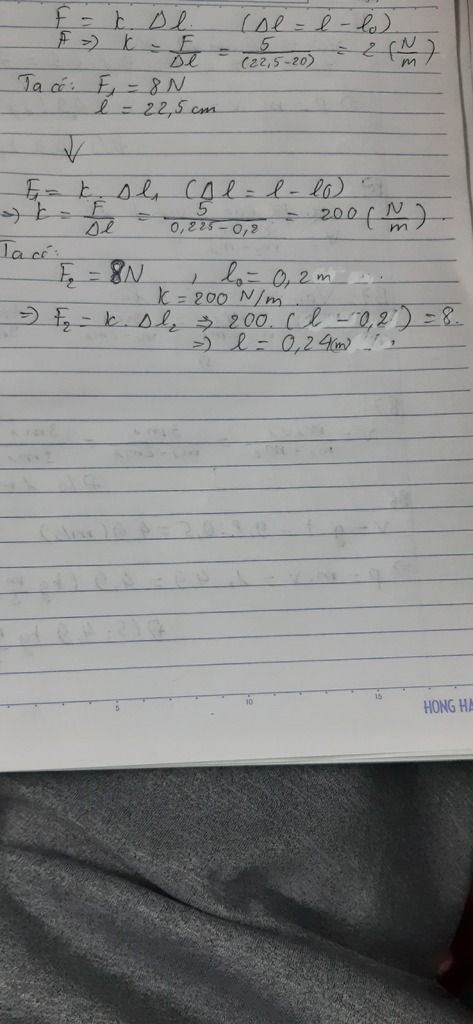 F = k. Δl. (Δl = l - l₀)
F ⇒ k = F/Δl = 5/(22,5-20) = 2 (N/m)
Ta có: F₁ = 8N
l = 22,5 cm
↓
F₁ = k. Δl₁ (Δl = l - l₀)
⇒ k = F/Δl = 5/0,225-0,2 = 200 (N/m).
Ta có:
F₂ = 8N , l₀ = 0,2 m
k = 200 N/m.
⇒ F₂ = k. Δl₂ ⇒ 200. (l - 0,2) = 8.
⇒ l = 0,24(m)
5 10 15
HONG HA